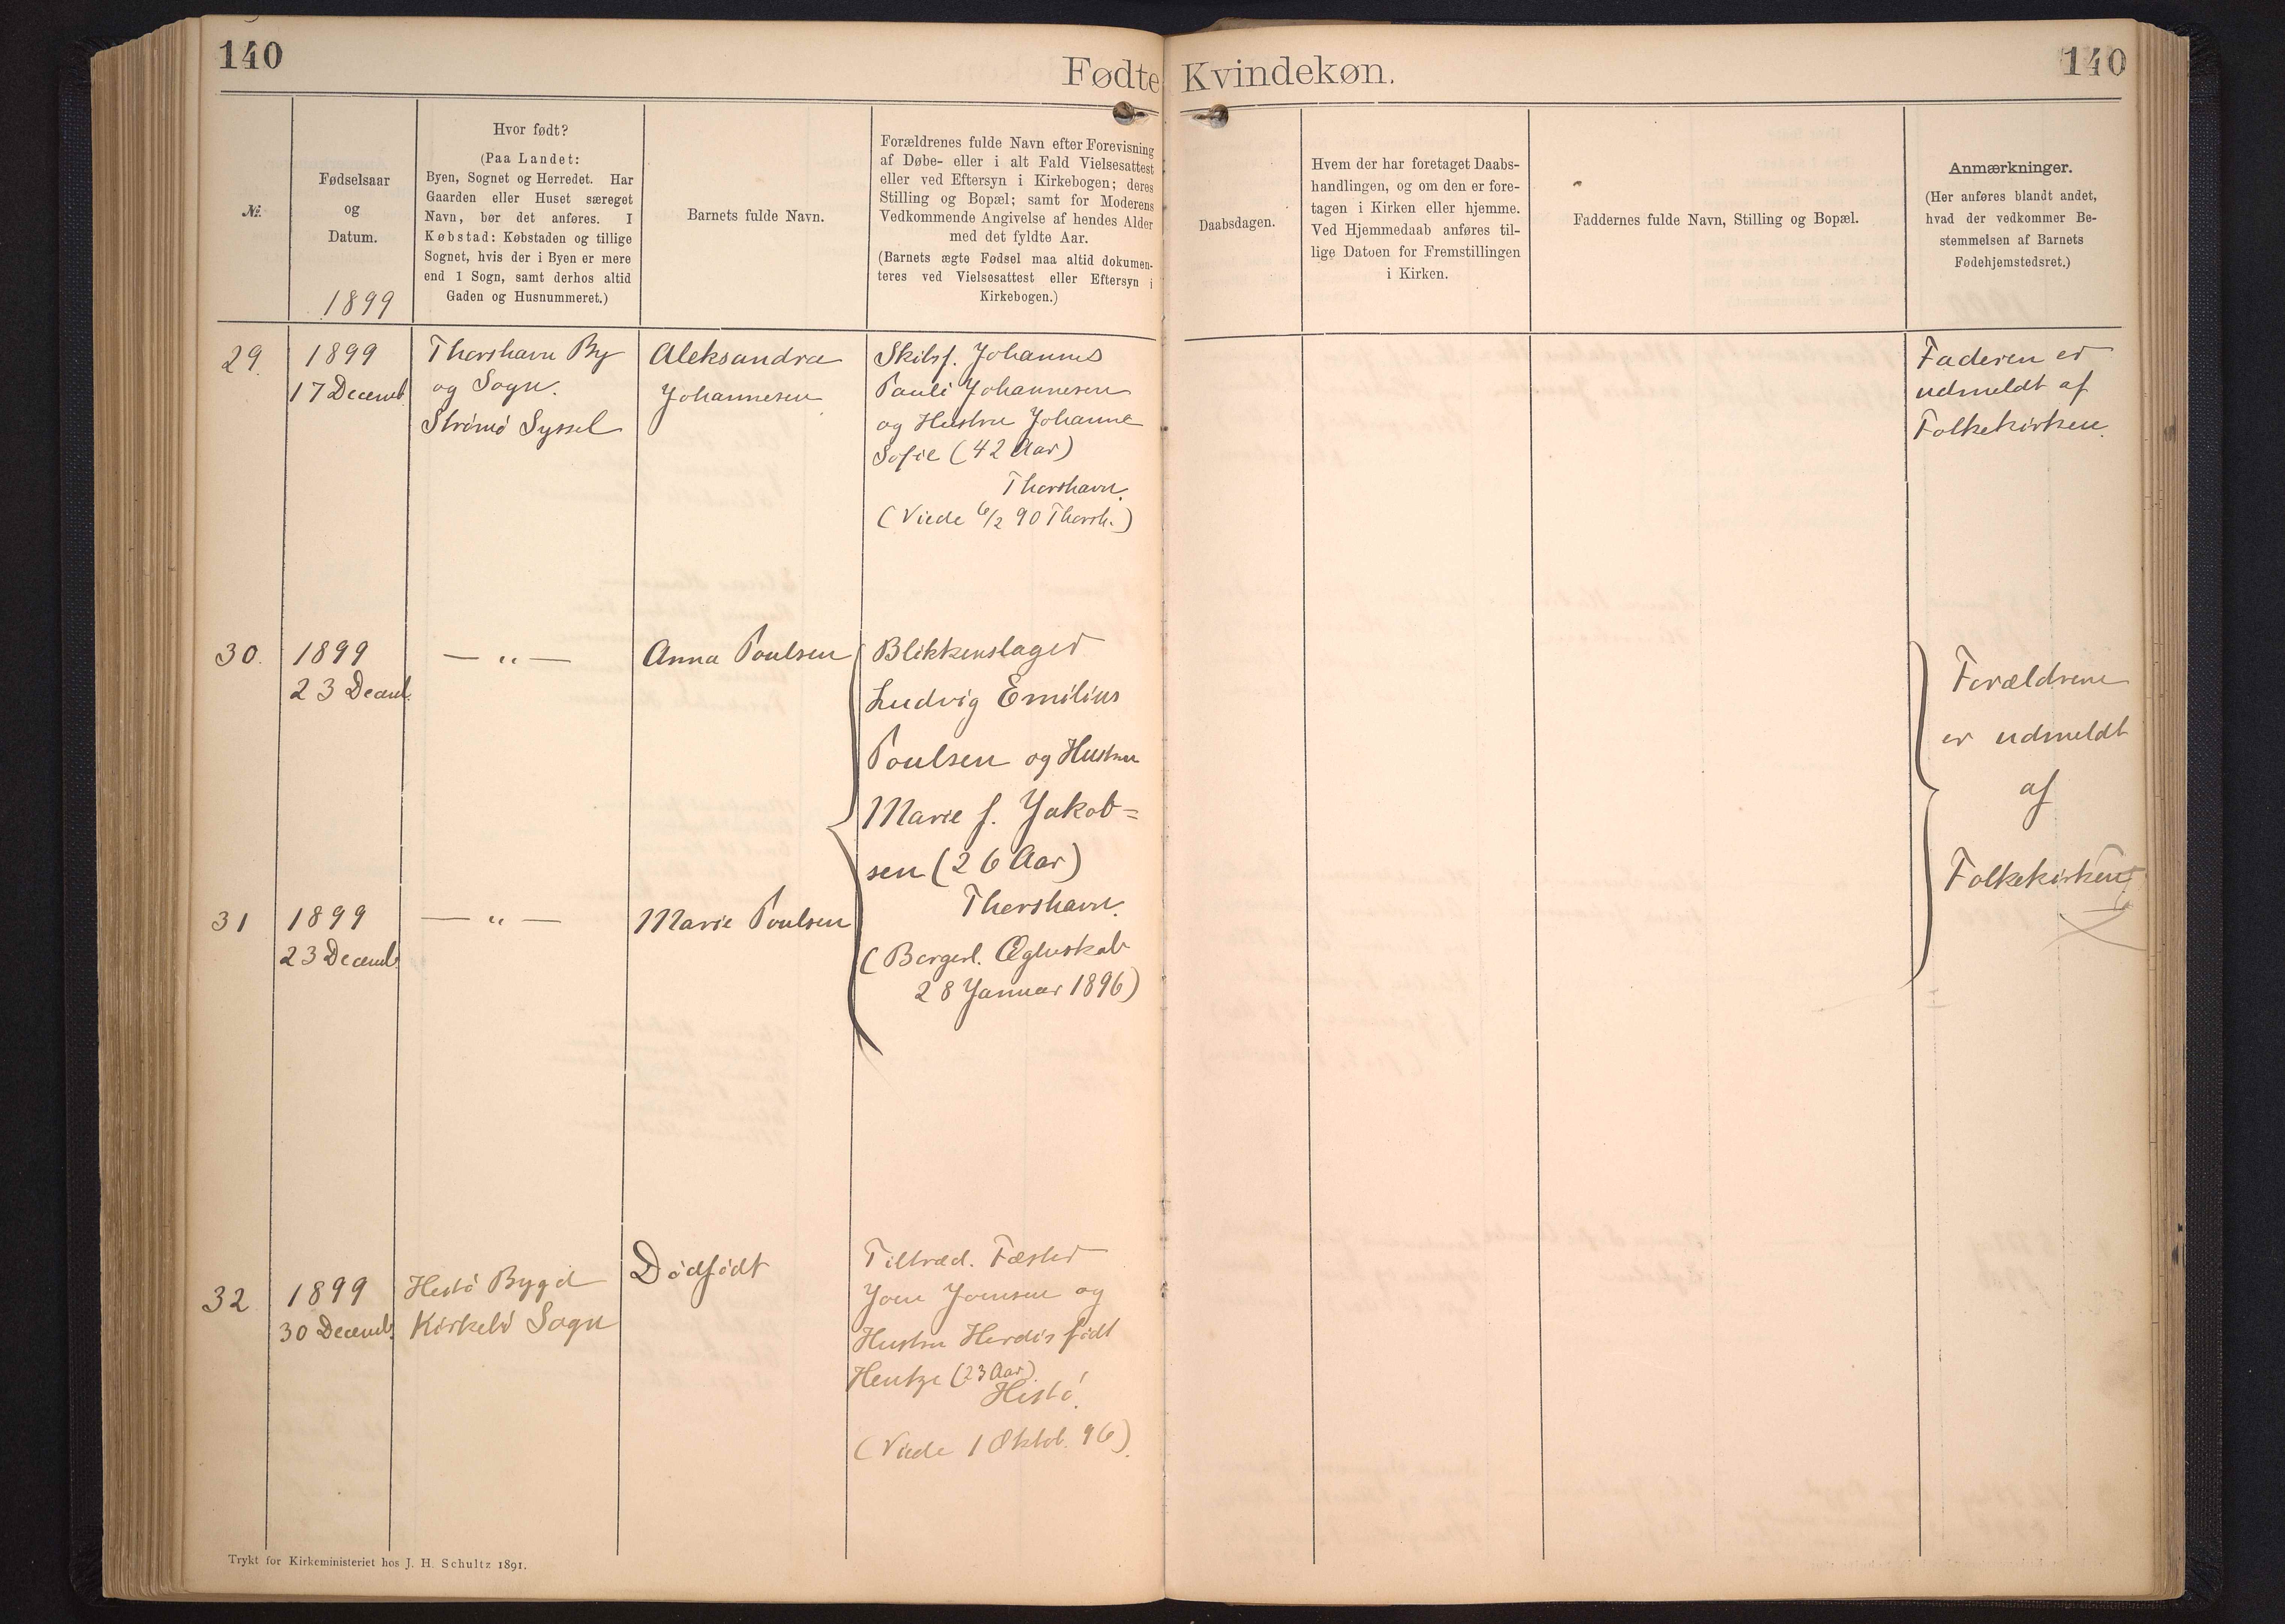 140
Fødte Kvindekøn.
140
№.
Fødselsaar
og
Datum.
1899
Hvor født?
(Paa Landet:
Byen, Sognet og Herredet. Har
Gaarden eller Huset særeget
Navn, bør det anføres. I
Købstad: Købstaden og tillige
Sognet, hvis der i Byen er mere
end 1 Sogn, samt derhos altid
Gaden og Husnummeret.)
Barnets fulde Navn.
Forældrenes fulde Navn efter Forevisning
af Døbe- eller i alt Fald Vielsesattest
eller ved Eftersyn i Kirkebogen; deres
Stilling og Bopæl; samt for Moderens
Vedkommende Angivelse af hendes Alder
med det fyldte Aar.
(Barnets ægte Fødsel maa altid dokumen-
teres ved Vielsesattest eller Eftersyn i
Kirkebogen.)
Daabsdagen.
Hvem der har foretaget Daabs-
handlingen, og om den er fore-
tagen i Kirken eller hjemme.
Ved Hjemmedaab anføres til-
lige Datoen for Fremstillingen
i Kirken.
Faddernes fulde Navn, Stilling og Bopæl.
Anmærkninger.
(Her anføres blandt andet,
hvad der vedkommer Be-
stemmelsen af Barnets
Fødehjemstedsret.)
29.
1899
17 Decemb.
Thorshavn By
og Sogn.
Strømø Syssel
Aleksandra
Johannesen
Skibsf. Johannes
Pauli Johannesen
og Hustru Johanne
Sofie (42 Aar)
Thorshavn.
(Viede 6/2 90 Thorsh.)
Faderen er
udmeldt af
Folkekirken.
30.
1899
23 Decemb.
— " —
Anna Poulsen
Blikkenslager
Ludvig Emilius
Poulsen og Hustru
Marie f. Jakob=
sen (26 Aar)
Thorshavn.
(Borgerl. Ægteskab
28 Januar 1896)
Forældrene
er udmeldt
af
Folkekirken
31
1899
23 Decemb.
— " —
Marie Poulsen
32
1899
30 Decemb.
Hestø Bygd
Kirkebø Sogn
Dødfødt
Tiltræd. Fæster
Joen Joensen og
Hustru Herdis født
Hentze (23 Aar)
Hestø.
(Viede 1 Oktob. 96).
Trykt for Kirkeministeriet hos J. H. Schultz 1891.